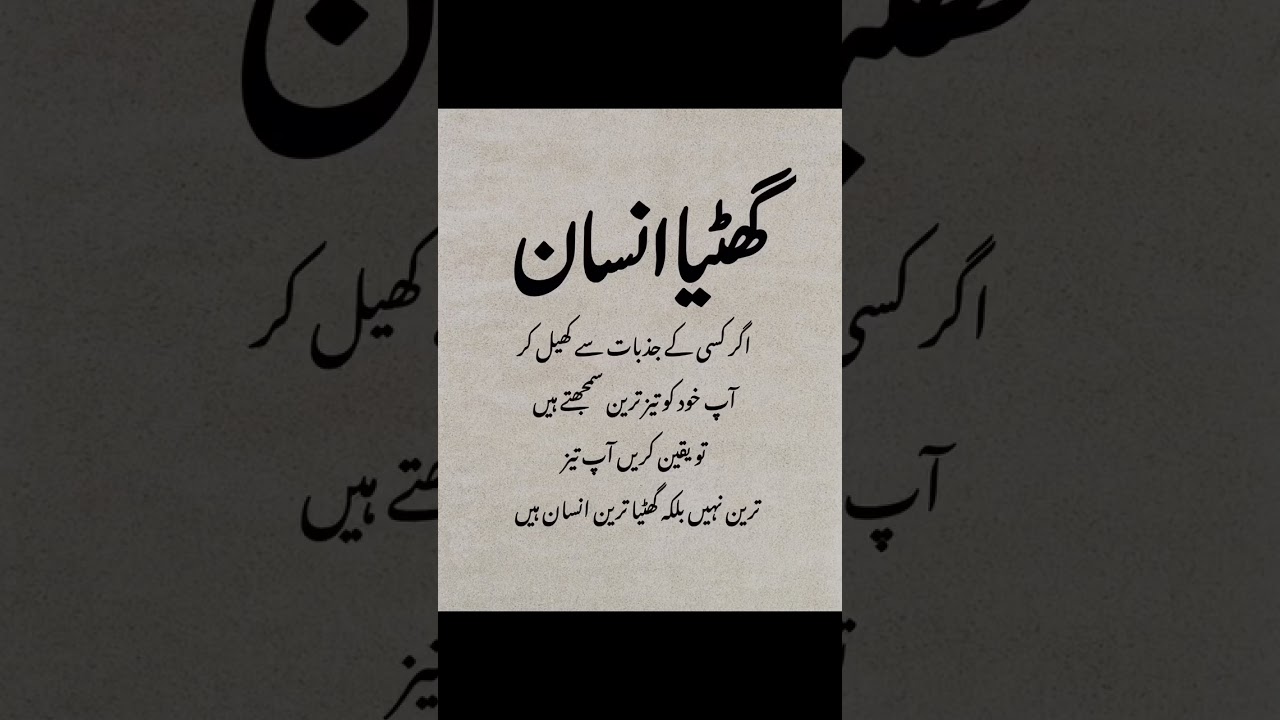 گھٹیا انسان
اگر کسی کے جذبات سے کھیل کر
آپ خود کو تیز ترین سمجھتے ہیں
تو یقین کریں آپ تیز
ترین نہیں بلکہ گھٹیا ترین انسان ہیں